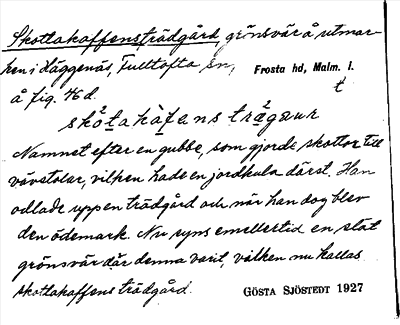 Skottakaffens trädgård grönsvär å utmar-
ken i Häggenäs, Fulltofta sn, Frosta hd, Malm. l.
å fig. 46 d. t
skò²ta hà²fens trä²gaur
Namnet efter en gubbe, som gjorde skottor till
vävstolar, vilken hade en jordkula därst. Han
odlade upp en trädgård och när han dog blev
den ödemark. Nu syns emellertid en slät
grönsvär där denna varit, vilken nu kallas
skottakaffens trädgård. GÖSTA SJÖSTEDT 1927